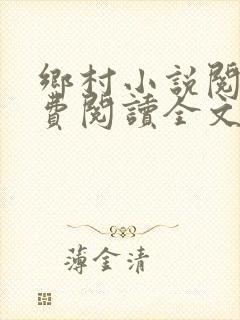 鄉村小說閱
費閱讀全文
薄金清